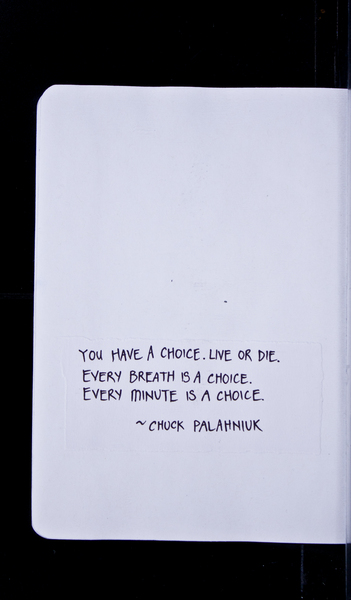 YOU HAVE A CHOICE. LIVE OR DIE.
EVERY BREATH IS A CHOICE.
EVERY MINUTE IS A CHOICE.
~CHUCK PALAHNIUK